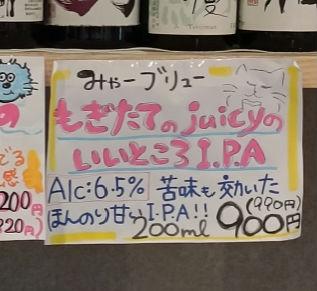 みゃーブリュー
もぎたてのjuicyの
いいところI.P.A
Alc:6.5% 苦味も効いた
ほんのり甘いI.P.A!!
200ml 900円
(990円)
でる
感
200円
920円)